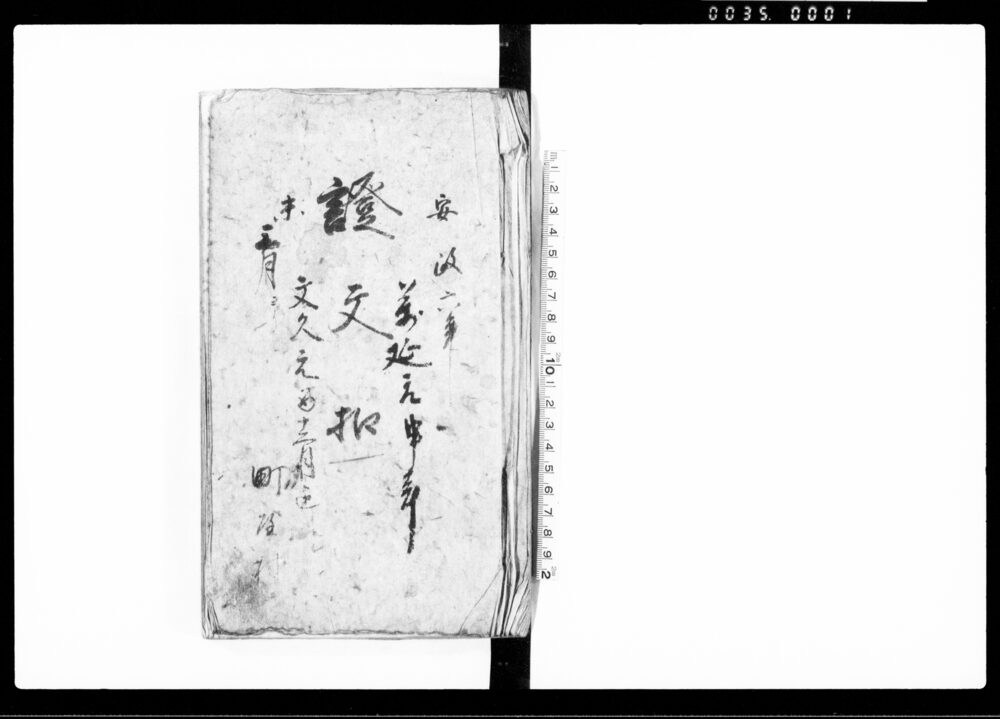 0035. 0001
安政六年
萬延元申年
證文扣
文久元酉十二月迄
未
正月
町
1 2 3 4 5 6 7 8 9 10 1 2 3 4 5 6 7 8 9 2